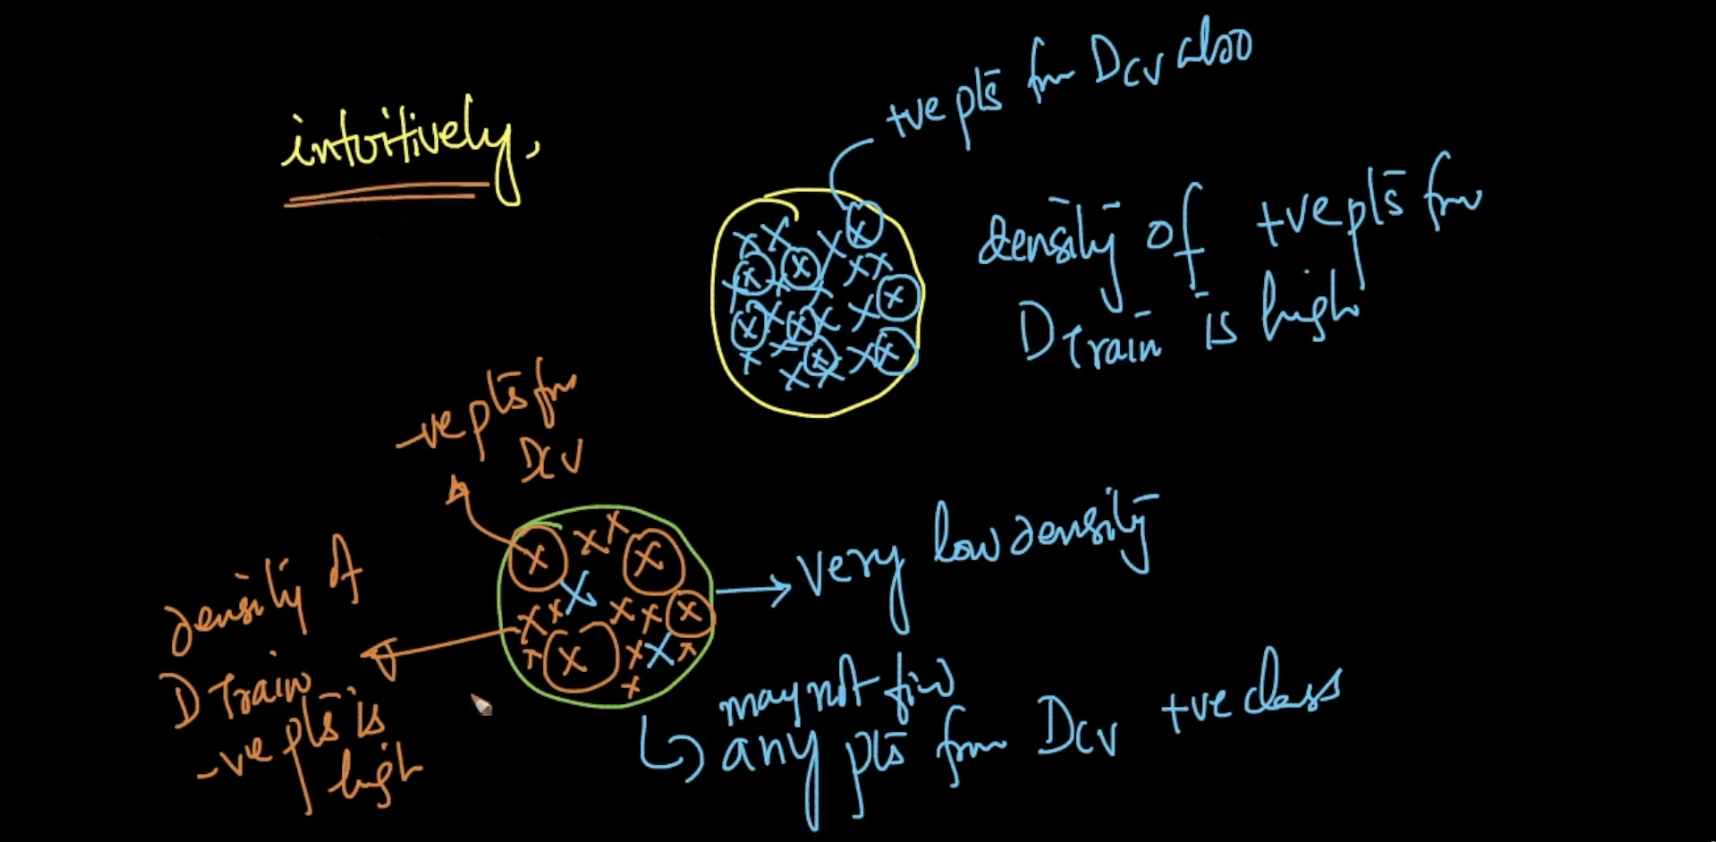 intuitively,
+ve pts from DCV also
density of +ve pts from
DTrain is high
-ve pts from
DCV
density of
DTrain
-ve pts is
high
very low density
may not find
any pts from DCV +ve class